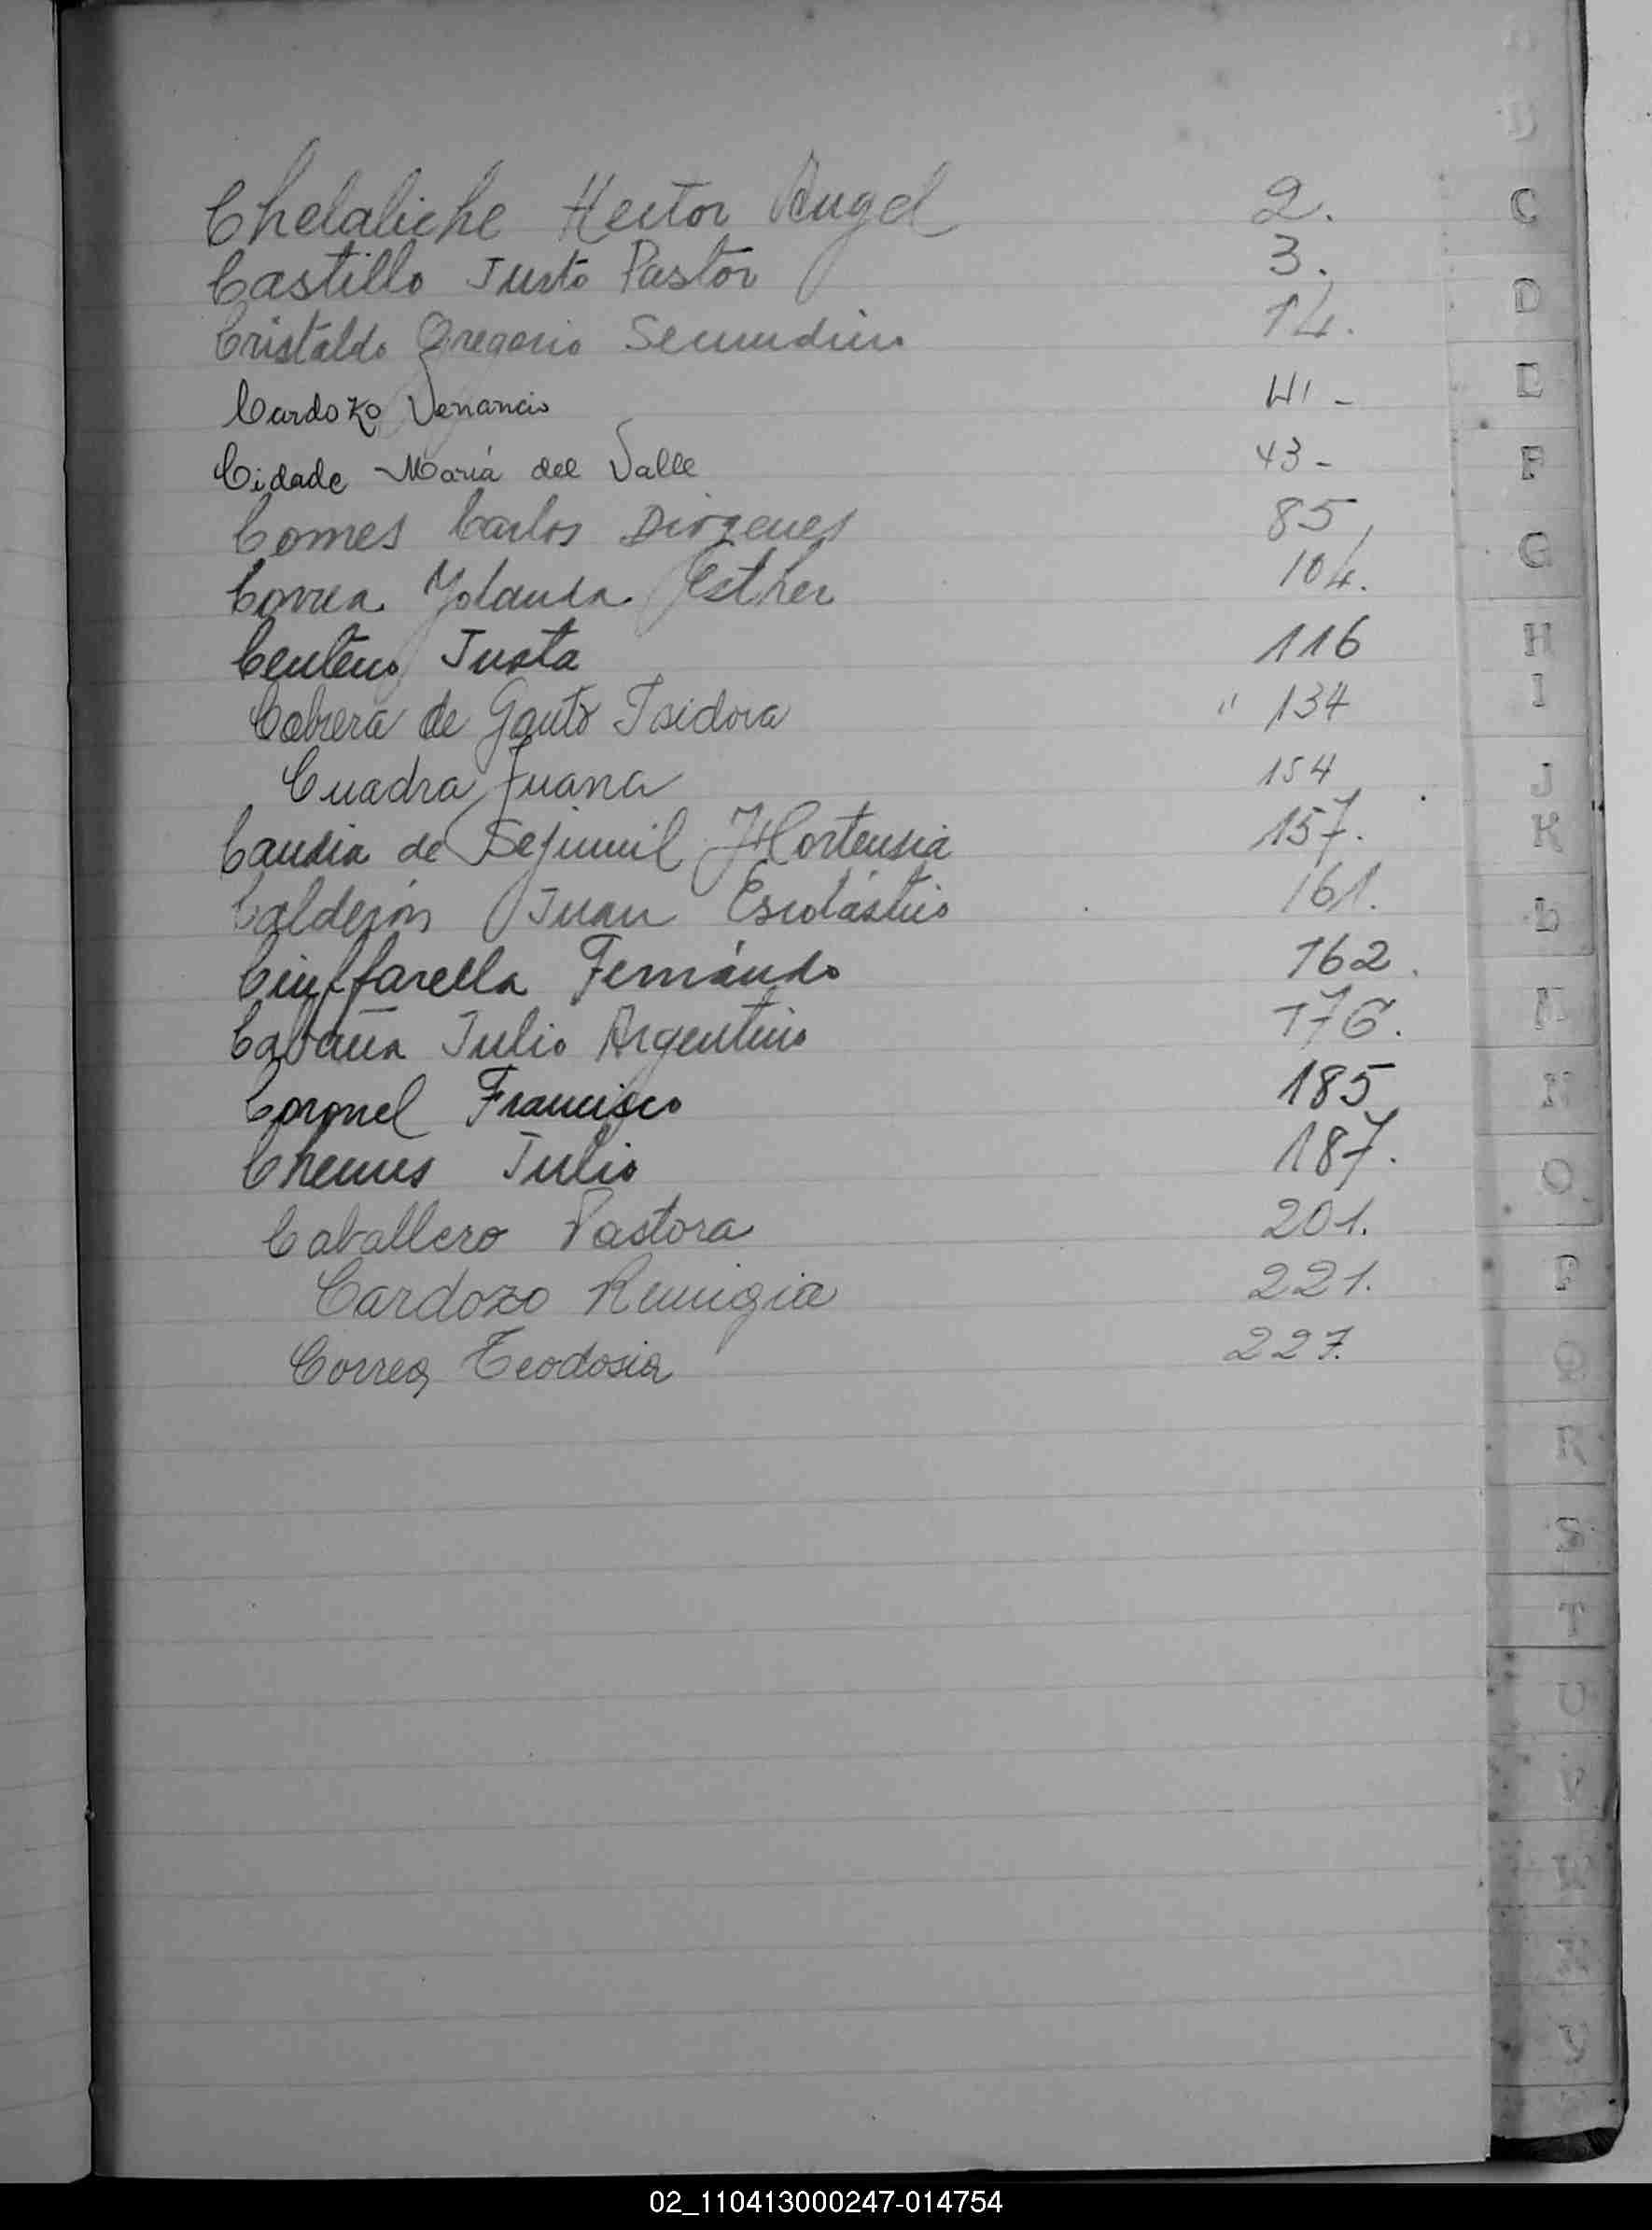 Chelaliche Hector Angel 2.
Castillo Justo Pastor 3.
Cristaldo Gregorio Secundino 14.
Cardozo Venancio 41 -
Cidade María del Valle 43 -
Comes Carlos Diogenes 85
Correa Yolanda Esther 104.
Centeno Justa 116
Cabrera de Gauto Isidora " 134
Cuadra Juana 154
de Hortensia 157.
Calderón Juan Escolástico 161.
Ciuffarella Fernándo 162.
Cabaña Julio Argentino 176.
Coronel Francisco 185
Julio 187.
Caballero Pastora 201.
Cardozo Remigia 221.
Correa Teodosia 227.
C
D
E
F
G
H
I
J
K
L
M
N
O
P
Q
R
S
T
U
V
02_110413000247-014754